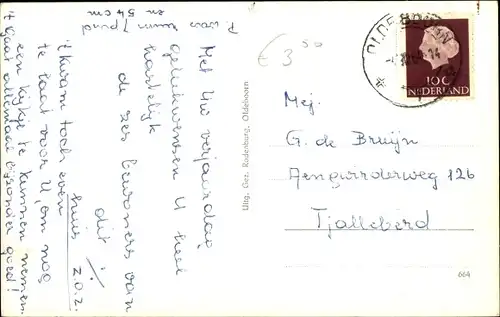 P. was ruim 7 pond
en 54 cm
Met Uw verjaardag
gelukwensen U heel
hartelijk
de zes bewoners van
dit
huis z.o.z.
't kwam toch even
te laat voor U, om nog
een kijkje te kunnen nemen.
't gaat allemaal bijzonder goed!
Uitg. Gez. Rodenburg, Oldeboorn
€ 3,50
OLDEBOORN
10 C
NEDERLAND
Mej.
G. de Bruijn
Aengwirderweg 126
Tjalleberd
664